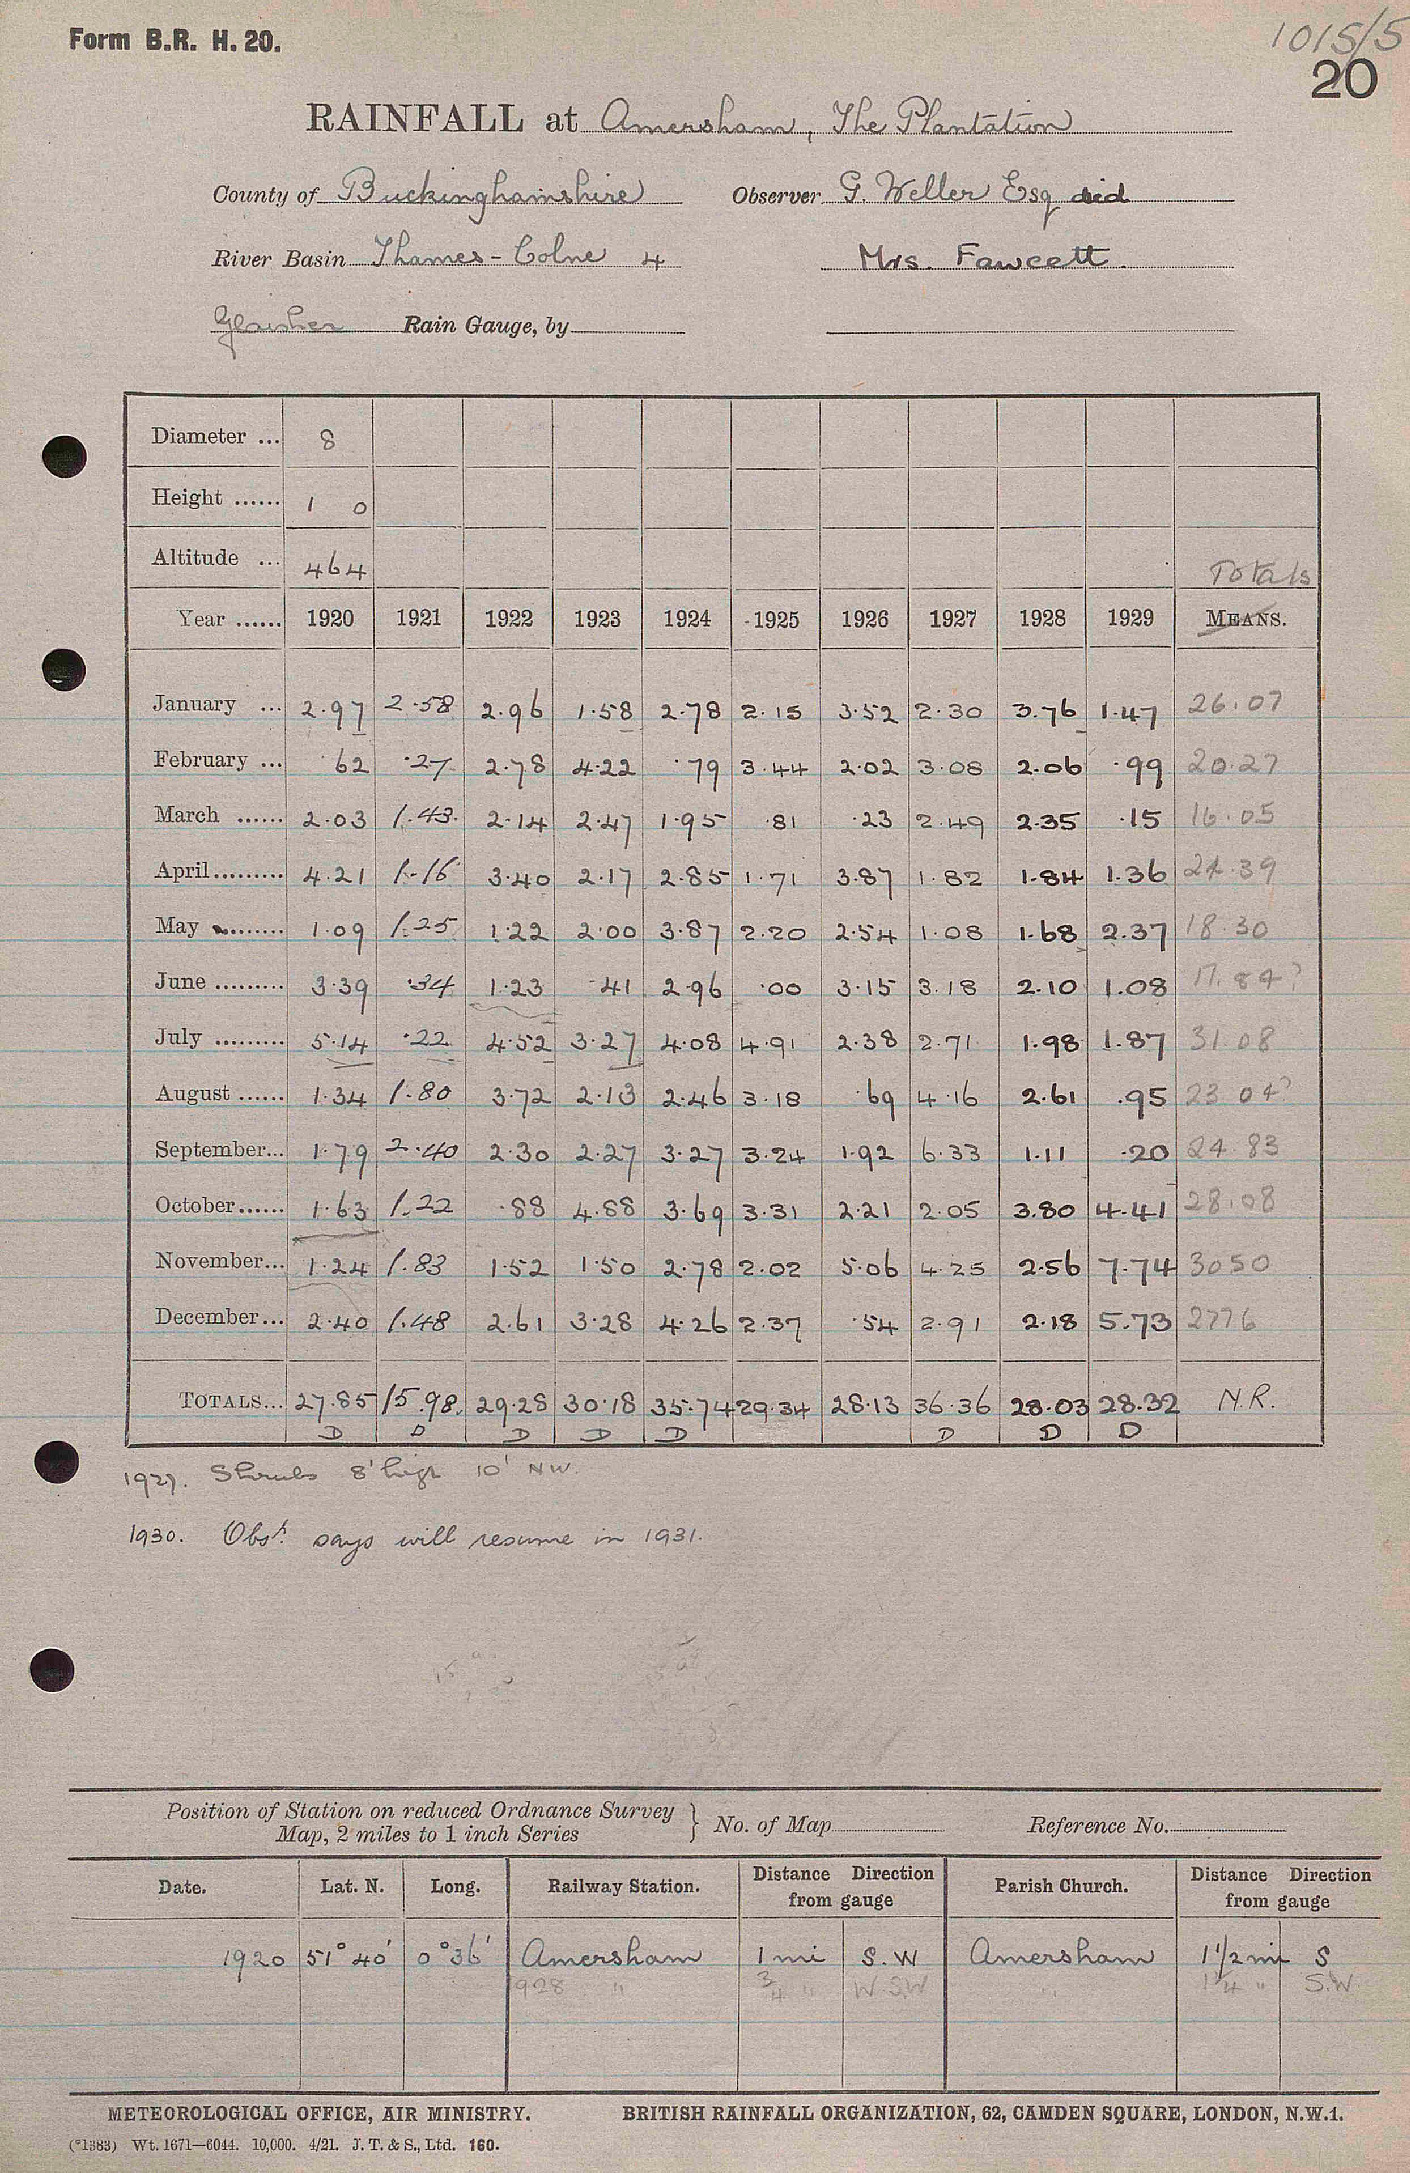 Form B.R. H. 20.
1015/5
20
RAINFALL at Amersham, The Plantation
County of Buckinghamshire Observer G. Weller Esq died
River Basin Thames - Colne 4 Mrs. Fawcett.
Glaisher Rain Gauge, by
Diameter ... 8
Height ...... 1 0
Altitude ... 464 Totals
Year ...... 1920 1921 1922 1923 1924 1925 1926 1927 1928 1929 MEANS.
January ... 2.97 2.58 2.96 1.58 2.78 2.15 3.52 2.30 3.76 1.47 26.07
February ... .62 .27 2.78 4.22 .79 3.44 2.02 3.08 2.06 .99 20.27
March ...... 2.03 1.43 2.14 2.47 1.95 .81 .23 2.49 2.35 .15 16.05
April......... 4.21 1.16 3.40 2.17 2.85 1.71 3.87 1.82 1.84 1.36 24.39
May ......... 1.09 1.25 1.22 2.00 3.87 2.20 2.54 1.08 1.68 2.37 18 30
June ......... 3.39 .34 1.23 .41 2.96 .00 3.15 3.18 2.10 1.08 17.84?
July ......... 5.14 .22 4.52 3.27 4.08 4.91 2.38 2.71 1.98 1.87 31.08
August ...... 1.34 1.80 3.72 2.13 2.46 3.18 .69 4.16 2.61 .95 23 04?
September... 1.79 2.40 2.30 2.27 3.27 3.24 1.92 6.33 1.11 .20 24.83
October...... 1.63 1.22 .88 4.88 3.69 3.31 2.21 2.05 3.80 4.41 28.08
November... 1.24 1.83 1.52 1.50 2.78 2.02 5.06 4.25 2.56 7.74 30 50
December... 2.40 1.48 2.61 3.28 4.26 2.37 .54 2.91 2.18 5.73 27 76
TOTALS... 27.85 15.98 29.28 30.18 35.74 29.34 28.13 36.36 28.03 28.32 N.R.
D D D D D D D D
1927. Shrubs 8' high 10' NW.
1930. Obsr. says will resume in 1931.
Position of Station on reduced Ordnance Survey
Map, 2 miles to 1 inch Series } No. of Map Reference No.
Date. Lat. N. Long. Railway Station. Distance Direction from gauge Parish Church. Distance Direction from gauge
1920 51° 40' 0° 36' Amersham 1 mi S.W Amersham 1 1/2 mi S
1928 " 3/4 " W.S.W " 1 1/4 " S.W.
METEOROLOGICAL OFFICE, AIR MINISTRY. BRITISH RAINFALL ORGANIZATION, 62, CAMDEN SQUARE, LONDON, N.W.1.
(*1383) Wt. 1671—6044. 10,000. 4/21. J. T. & S., Ltd. 160.